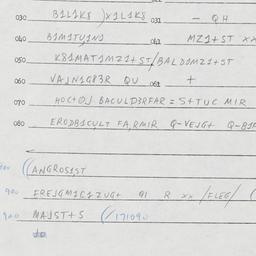 030 B1L1K8 )X1L1K8 031 - QH
040 B1M1TU1N1 041 MZ1+ST XX
050 K81MAT1MZ1+ST/BALDDMZ1+ST
060 VAJN1G83R QU 061 +
070 HOC+OJ BACULD3RFAR=S+TUC MIR
080 ERODB1CULT FA,RMIR Q-VEJG+ Q-B1F
((ANGROS1ST
900 EREJGM1C1ZUG+ Q1 R XX /FLEG/ (
900 MAJST+S (/171090